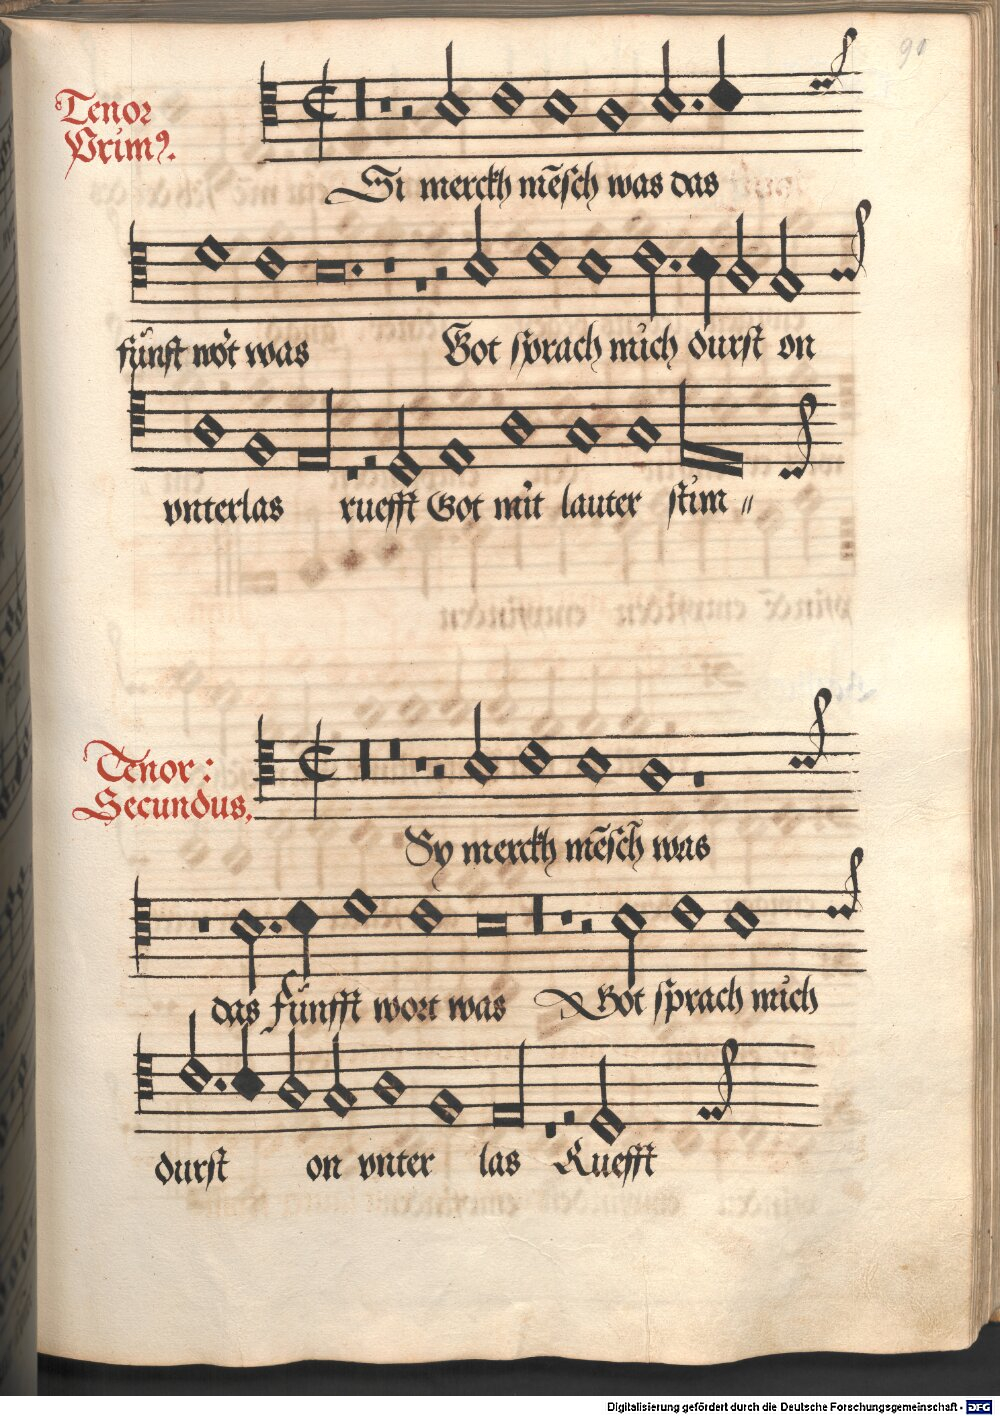 90
Tenor
Primꝰ.
Si merckh mẽsch was das
fünft wört was Got sprach mich durst on
vnterlas ruefft Got mit lauter stim〃
Tenor:
Secundus,
Sy merckh mẽsch was
das fünfft wort was Got sprach mich
durst on vnter las Ruefft
Digitalisierung gefördert durch die Deutsche Forschungsgemeinschaft - DFG